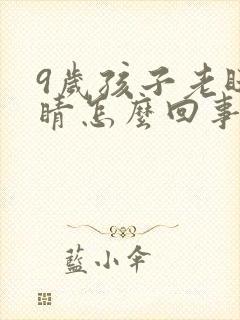 9歲孩子老眨
睛怎麼回事
藍小傘